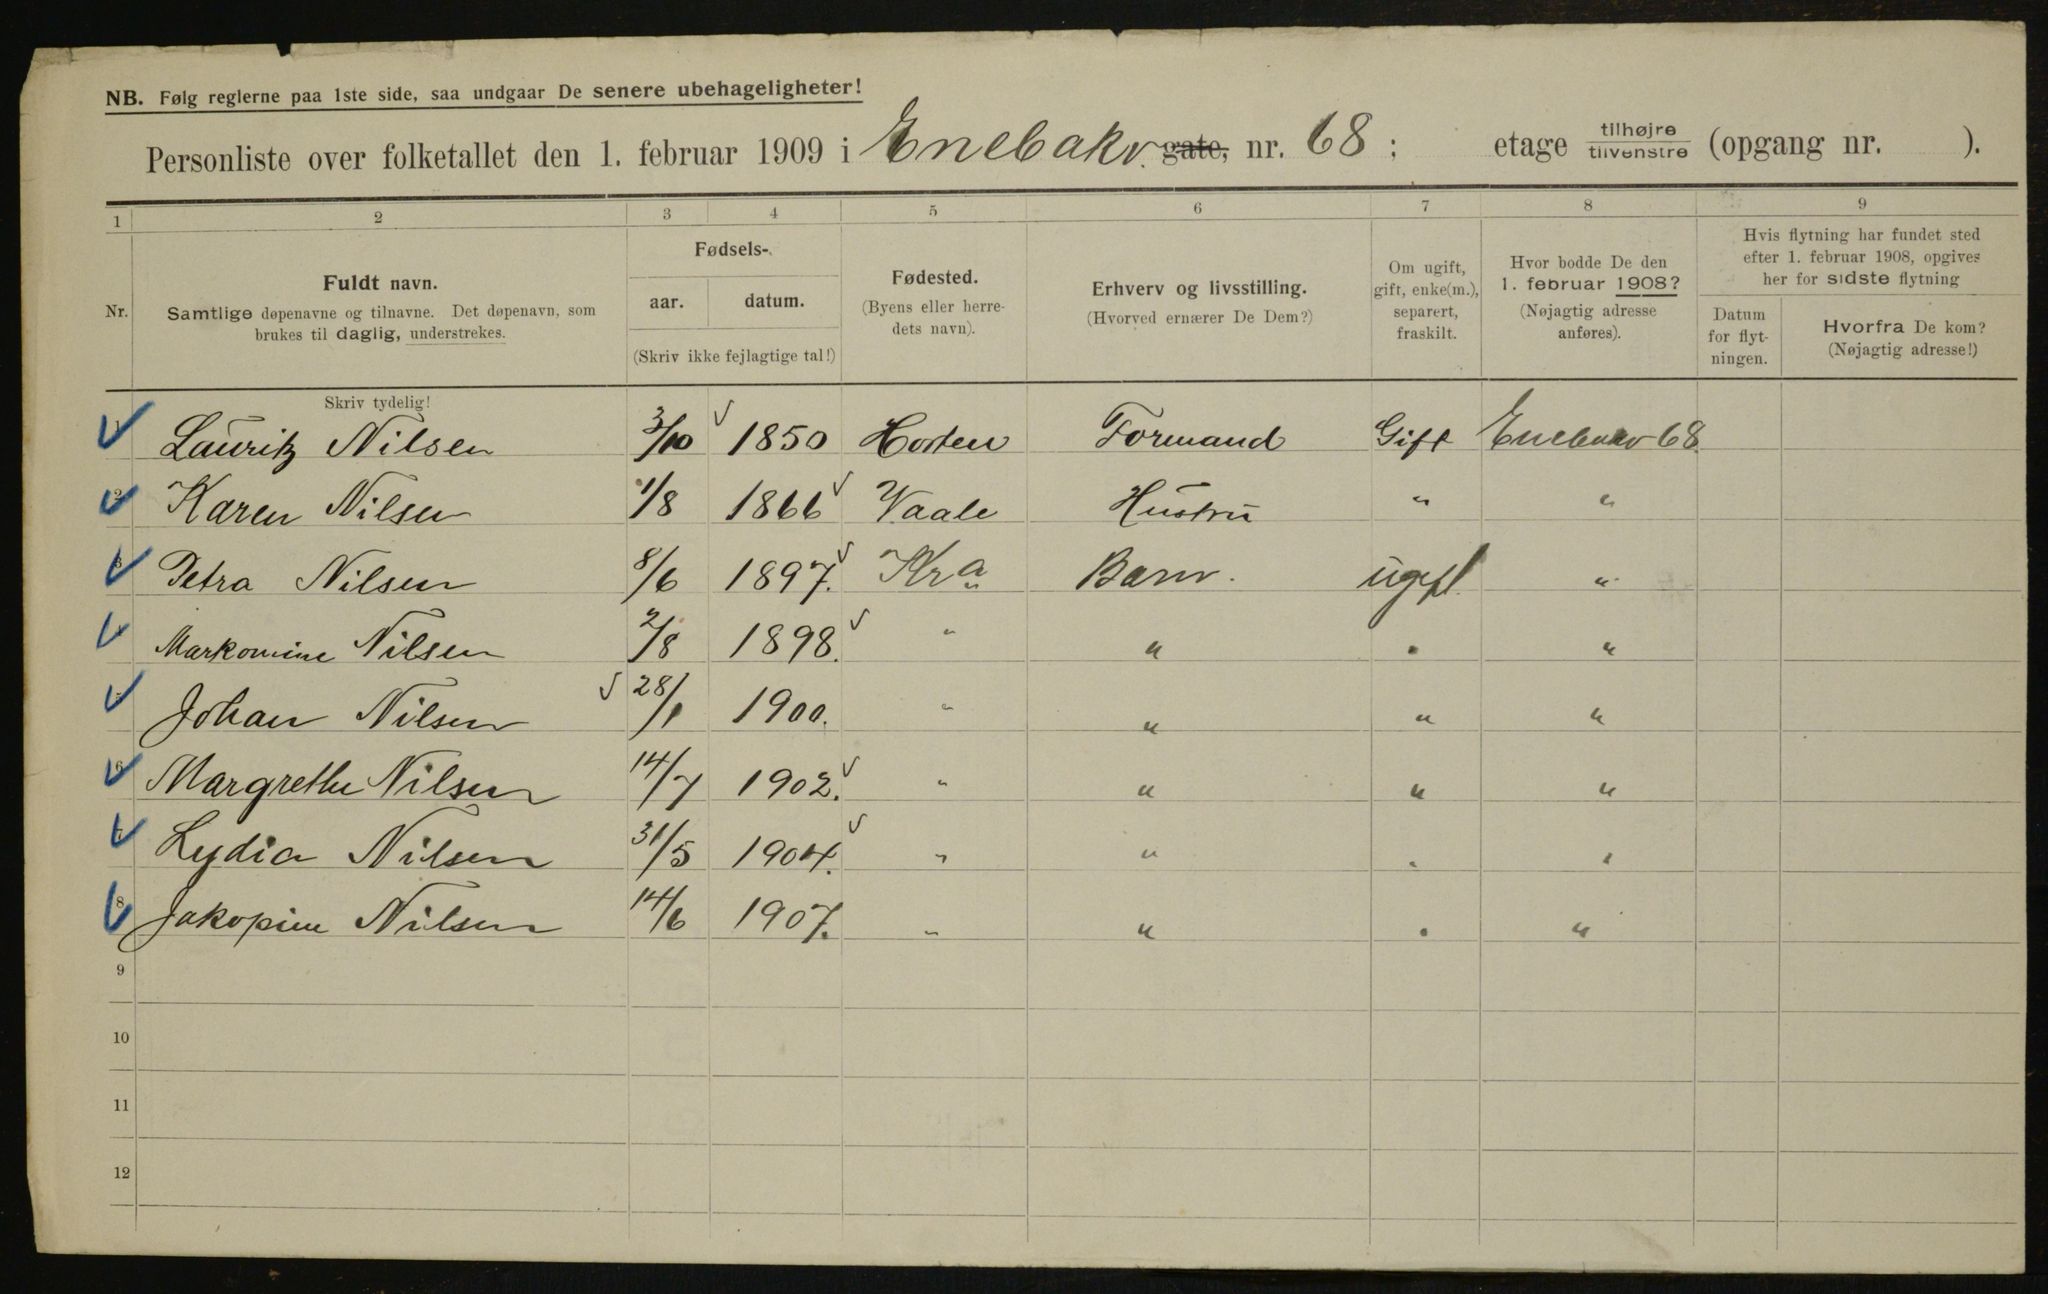 NB. Følg reglerne paa 1ste side, saa undgaar De senere ubehageligheter!
Personliste over folketallet den 1. februar 1909 i Enebakv. gate, nr. 68; etage tilhøjre tilvenstre (opgang nr. ).
1 2 3 4 5 6 7 8 9
Nr.
Fuldt navn.
Samtlige døpenavne og tilnavne. Det døpenavn, som
brukes til daglig, understrekes.
Fødsels-
aar. datum.
(Skriv ikke fejlagtige tal!)
Fødested.
(Byens eller herre-
dets navn).
Erhverv og livsstilling.
(Hvorved ernærer De Dem?)
Om ugift,
gift, enke(m.),
separert,
fraskilt.
Hvor bodde De den
1. februar 1908?
(Nøjagtig adresse
anføres).
Hvis flytning har fundet sted
efter 1. februar 1908, opgives
her for sidste flytning
Datum
for flyt-
ningen.
Hvorfra De kom?
(Nøjagtig adresse!)
Skriv tydelig!
Lauritz Nilsen 3/10 1850 Horten Formand Gift Enebakv 68.
2 Karen Nilsen 1/8 1866 Vaale Hustru " "
3 Petra Nilsen 8/6 1897. Kra Barn. ugift. "
4 Markomine Nilsen 2/8 1898. " " " "
5 Johan Nilsen 28/1 1900. " " " "
6 Margrethe Nilsen 14/7 1902. " " " "
7 Lydia Nilsen 31/5 1904. " " " "
8 Jakopine Nilsen 14/6 1907. " " " "
9
10
11
12